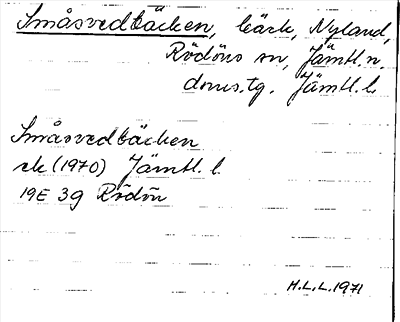 Småsvedbäcken, bäck, Nyland,
Rödöns sn, Jämtl. n.
doms.tg. Jämtl. l.
Småsvedbäcken
ek (1970) Jämtl. l.
19E 3g Rödön
H.L.L. 1971